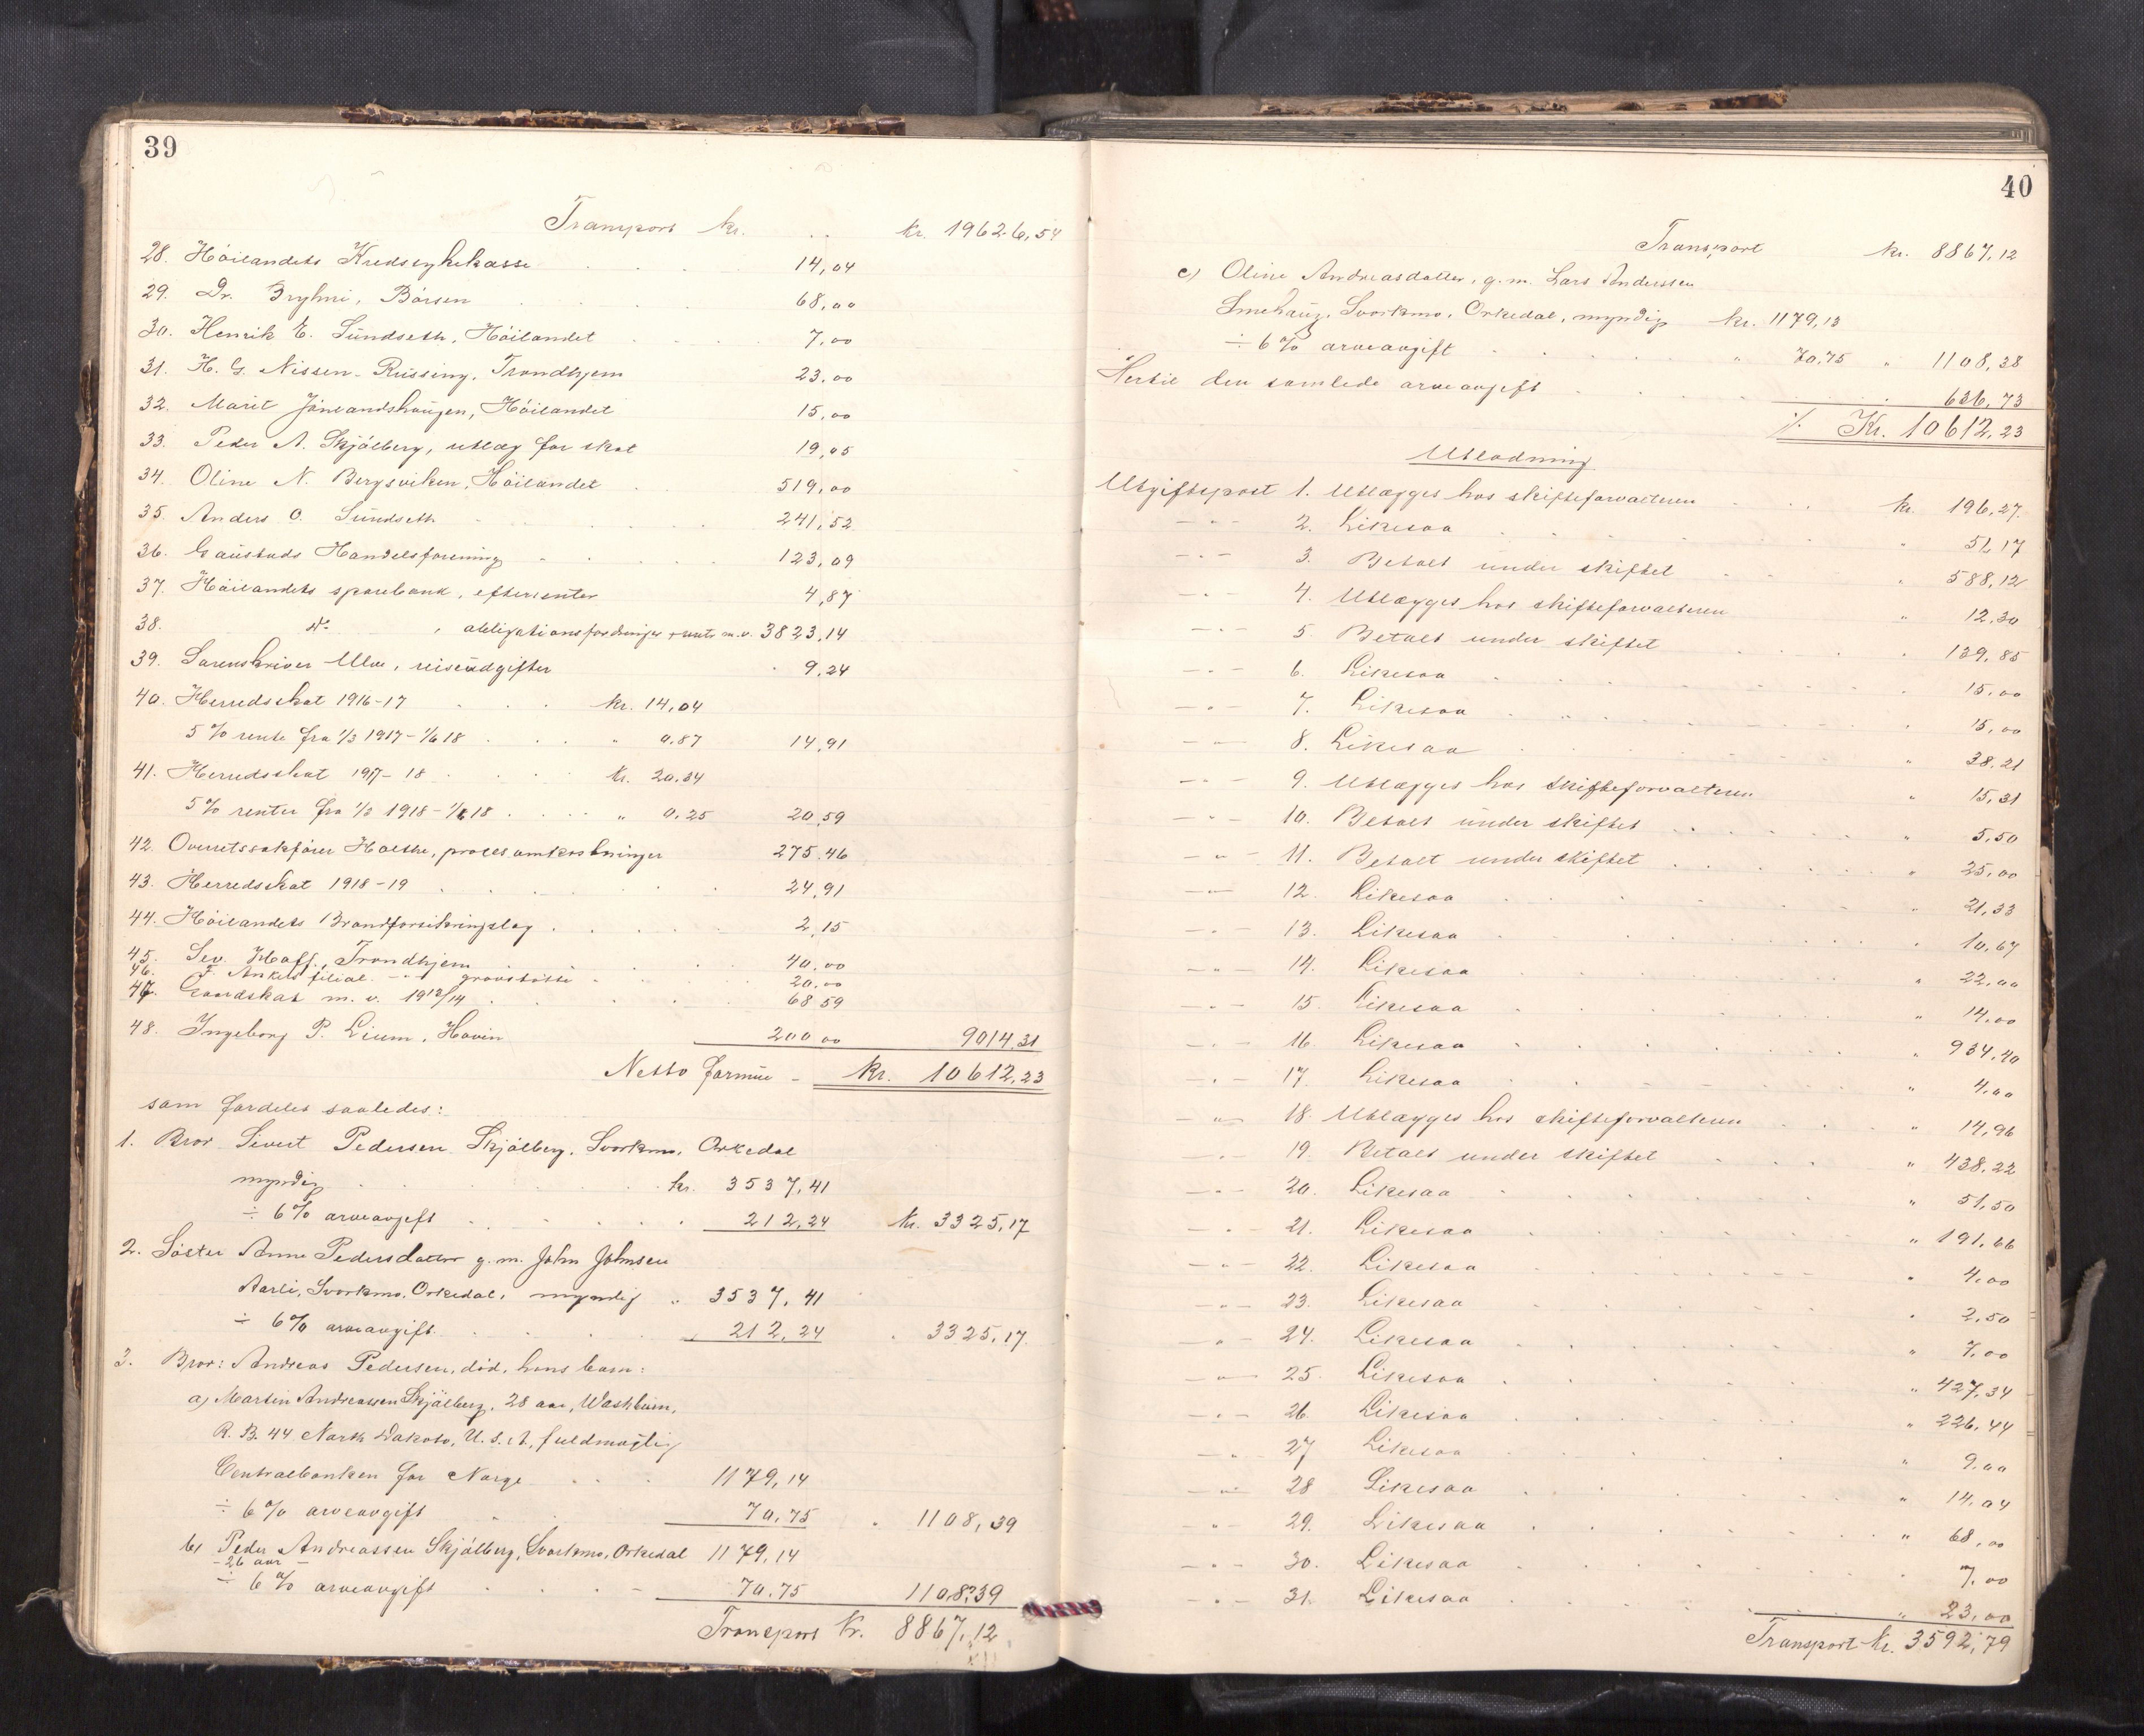 39
Transport kr. kr. 19626,54
28. Höilandets Kredssykekasse 14,04
29. Dr. Bryhni, Börsen 68,00
30. Henrik E. Sündseth, Höilandet 7,00
31. H. G. Nissen Trondhjem 23,00
32. Marit Höilandet 15,00
33. Peder A. Skjölberg, utlæg for skat 19,05
34. Oline N. Bergsviken, Höilandet 519,00
35. Anders O. Sündseth 241,52
36. Gaustads Handelsforening 123,09
37. Höilandets sparebank, efterrenter 4,87
38. do , obligationsfordringer + rente m.v. 3823,14
39. Sorenskriver reiseüdgifter 9,24
40. Herredsskat 1916-17 kr. 14,04
5% rente fra 1/3 1917 - 1/6 18 " 0.87 14,91
41. Herredsskat 1917-18 kr. 20.34
5% renter fra 1/3 1918 - 1/6 18 " 0.25 20,59
42. Overretssakförer procesomkostninger 275.46
43. Herredsskat 1918-19 24,91
44. Höilandets Brandforsikringslag 2,15
45. Sev. Trondhjem 40,00
46. filial - " - gravstötte 20,00
47. m. v. 1913/14 68 59
48. Ingeborg P. Lium, Hovin 200 00 9014,31
Netto formüe - kr. 10612,23
som fordeles saaledes:
1. Bror Sivert Pedersen Skjölberg, Svorkmo, Orkedal
myndig kr. 3537,41
÷ 6% arveavgift 212,24 kr. 3325,17
2. Söster Anne Pedersdatter g. m. John Johnsen
Aarli, Svorkmo, Orkedal, myndig " 3537,41
÷ 6% arveavgift. 212,24 " 3325,17
3. Bror: Andreas Pedersen, död, hans barn:
a) Martin Andreassen Skjölberg, 28 aar, Washburn,
R. B. 44 North Dakota, U. S. A, fuldmægtig
Centralbanken for Norge 1179,14
÷ 6% arveavgift " 70,75 " 1108,39
b) Peder Andreassen Skjölberg, Svorkmo, Orkedal 1179,14
- 26 aar -
÷ 6% arveavgift 70.75 1108,39
Transport kr. 8867,12
40
Transport kr. 8867,12
c) Oline Andreasdatter, g. m. Lars Anderssen
Smehaug, Svorkmo, Orkedal, myndig kr. 1179,13
÷ 6% arveavgift " 70.75 " 1108,38
Hertil den samlede arveavgift 636,73
Kr. 10612,23
Utlodning
Utgiftspost 1. Utlægges hos skifteforvalteren kr. 196,27
- " - 2. Likesaa " 51,17
- " - 3. Betalt under skiftet " 588,12
- " - 4. Utlægges hos skifteforvalteren " 12,30
- " - 5. Betalt under skiftet " 139,85
- " - 6. Likesaa " 15,00
- " - 7. Likesaa " 15,00
- " - 8. Likesaa " 38.21
- " - 9. Utlægges hos skifteforvalteren " 15,31
- " - 10. Betalt under skiftet " 5,50
- " - 11. Betalt under skiftet " 25,00
- " - 12. Likesaa " 21,33
- " - 13. Likesaa " 10,67
- " - 14. Likesaa " 22,00
- " - 15. Likesaa " 14,00
- " - 16. Likesaa " 934,40
- " - 17. Likesaa " 4,00
- " - 18. Utlægges hos skifteforvalteren " 14,96
- " - 19. Betalt under skiftet " 438,22
- " - 20. Likesaa " 51,50
- " - 21. Likesaa " 191,66
- " - 22. Likesaa " 4,00
- " - 23. Likesaa " 2,50
- " - 24. Likesaa " 7,00
- " - 25. Likesaa " 427,34
- " - 26. Likesaa " 226,44
- " - 27 Likesaa " 9,00
- " - 28 Likesaa " 14,04
- " - 29. Likesaa " 68,00
- " - 30. Likesaa " 7,00
- " - 31. Likesaa " 23,00
Transport kr. 3592,79